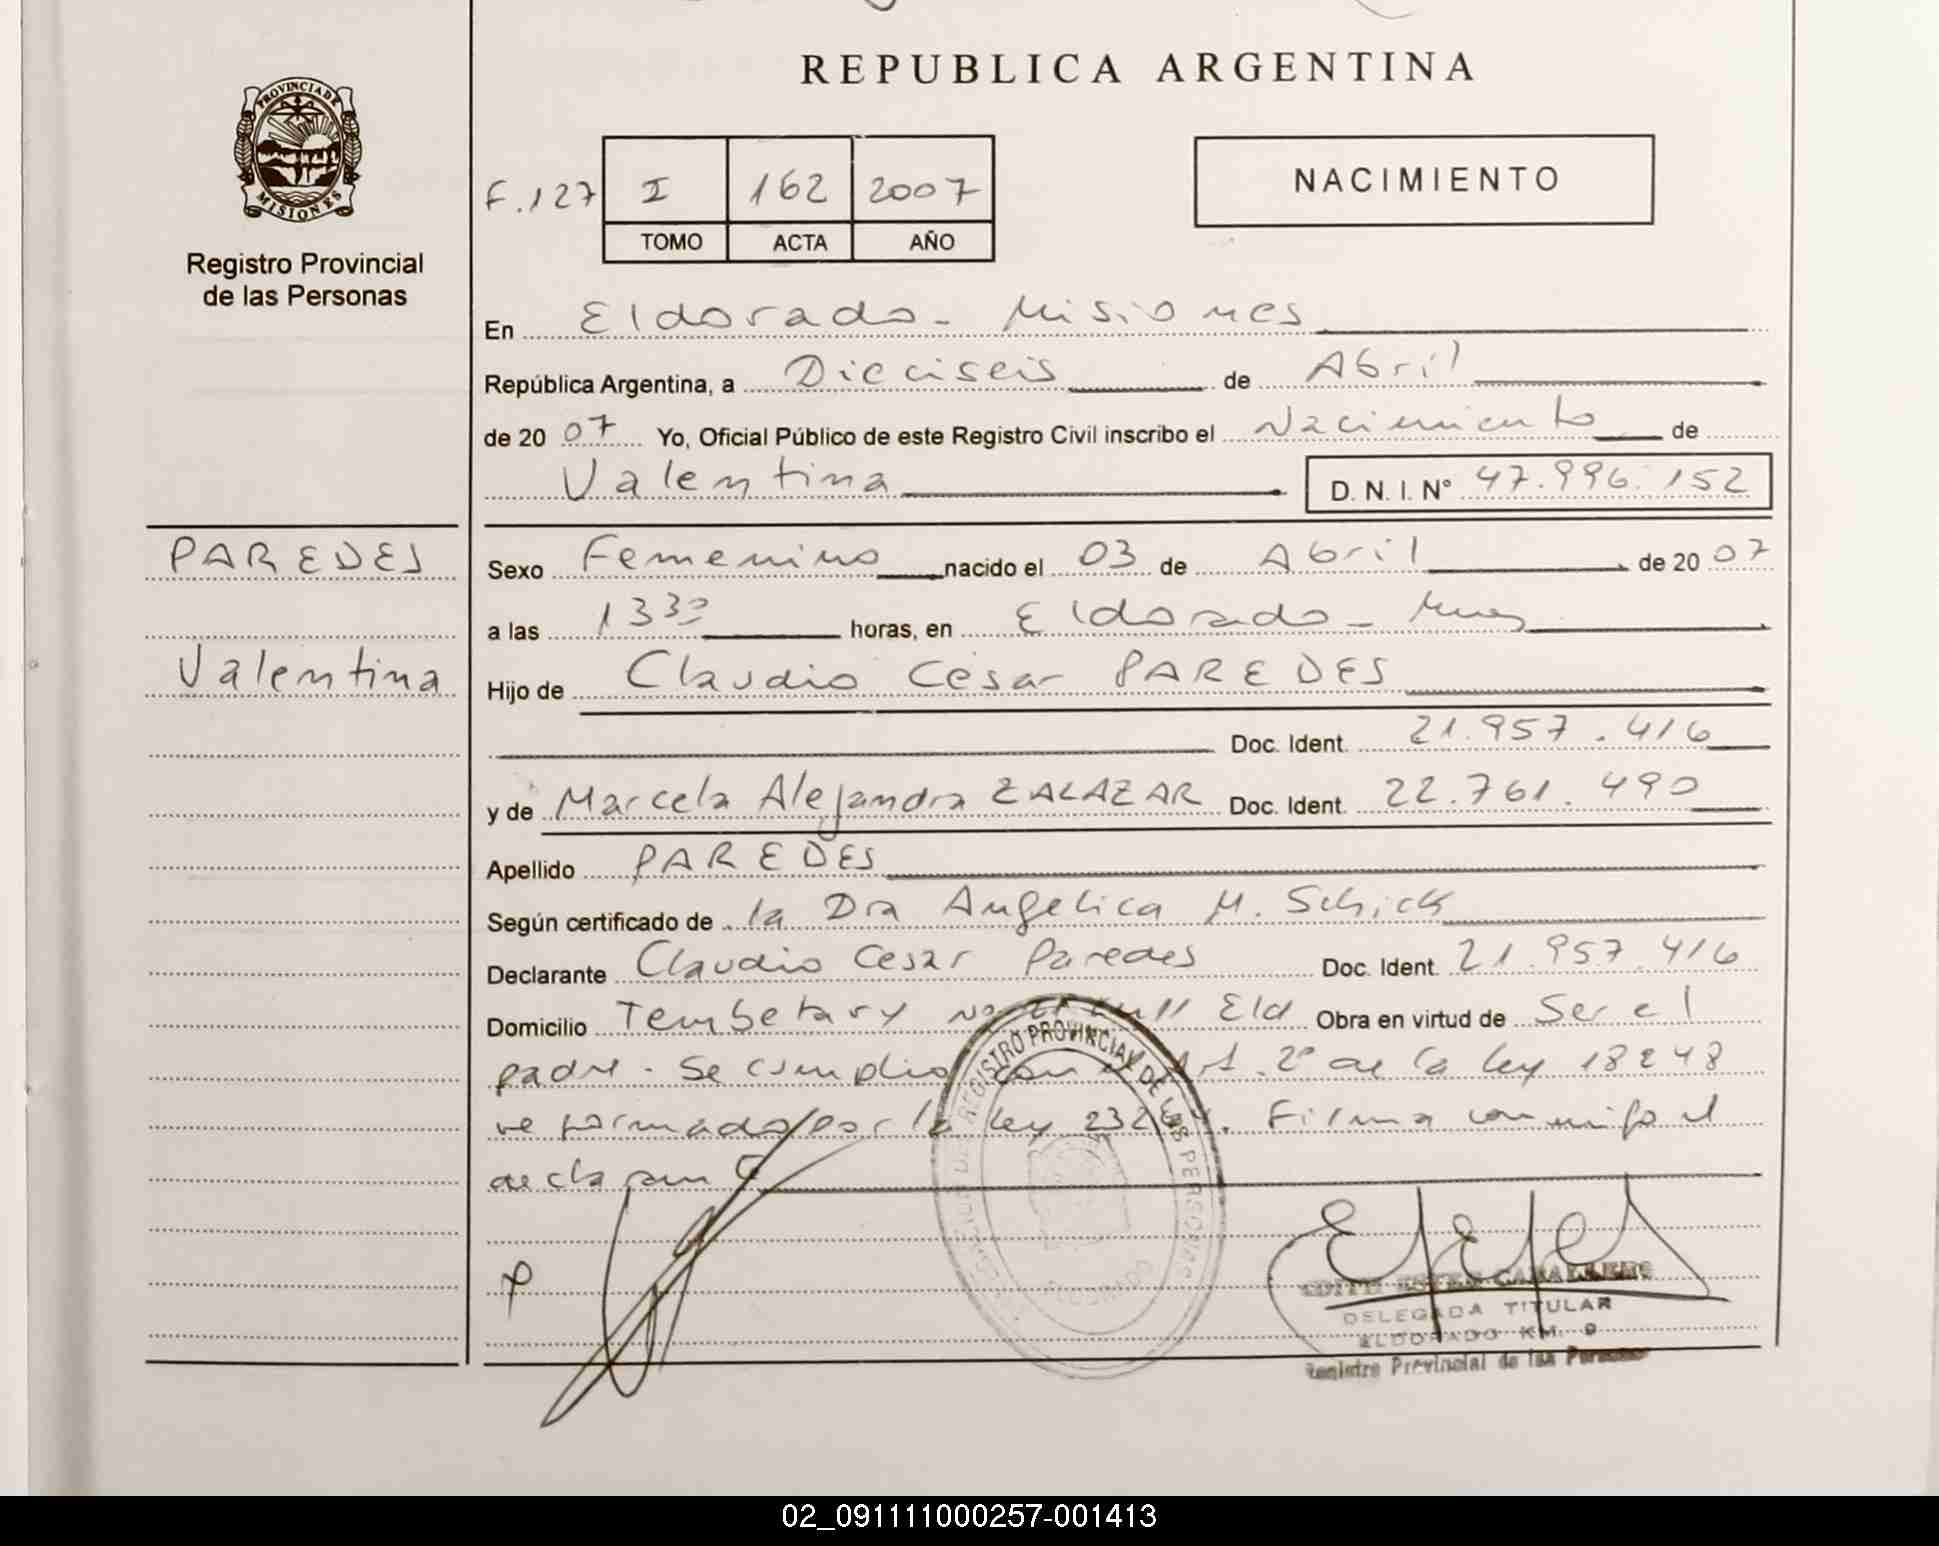 REPUBLICA ARGENTINA
PROVINCIA DE
MISIONES
Registro Provincial
de las Personas
NACIMIENTO
F.127 I 162 2007
TOMO ACTA AÑO
En Eldorado - Misiones
República Argentina, a Dieciseis de Abril
de 20 07 Yo, Oficial Público de este Registro Civil inscribo el Nacimiento de
Valentina D. N. I. Nº 47.996.152
PAREDES
Valentina
Sexo Femenino nacido el 03 de Abril de 20 07
a las 13 30 horas, en Eldorado - Mnes
Hijo de Claudio César PAREDES
Doc. Ident. 21.957.416
y de Marcela Alejandra ZALAZAR Doc. Ident. 22.761.490
Apellido PAREDES
Según certificado de la Dra Angelica M. Schick
Declarante Claudio Cesar Paredes Doc. Ident. 21.957.416
Domicilio Tembetary Eld Obra en virtud de Ser el
padre. Se cumplio con el Art. 2º de la ley 18248
reformado por la ley Firma conmigo el
declarante
REGISTRO PROVINCIAL DE LAS PERSONAS
ELDORADO
EDITH ESTER CABALLERO
DELEGADA TITULAR
ELDORADO KM. 9
Registro Provincial de las Personas
02_091111000257-001413